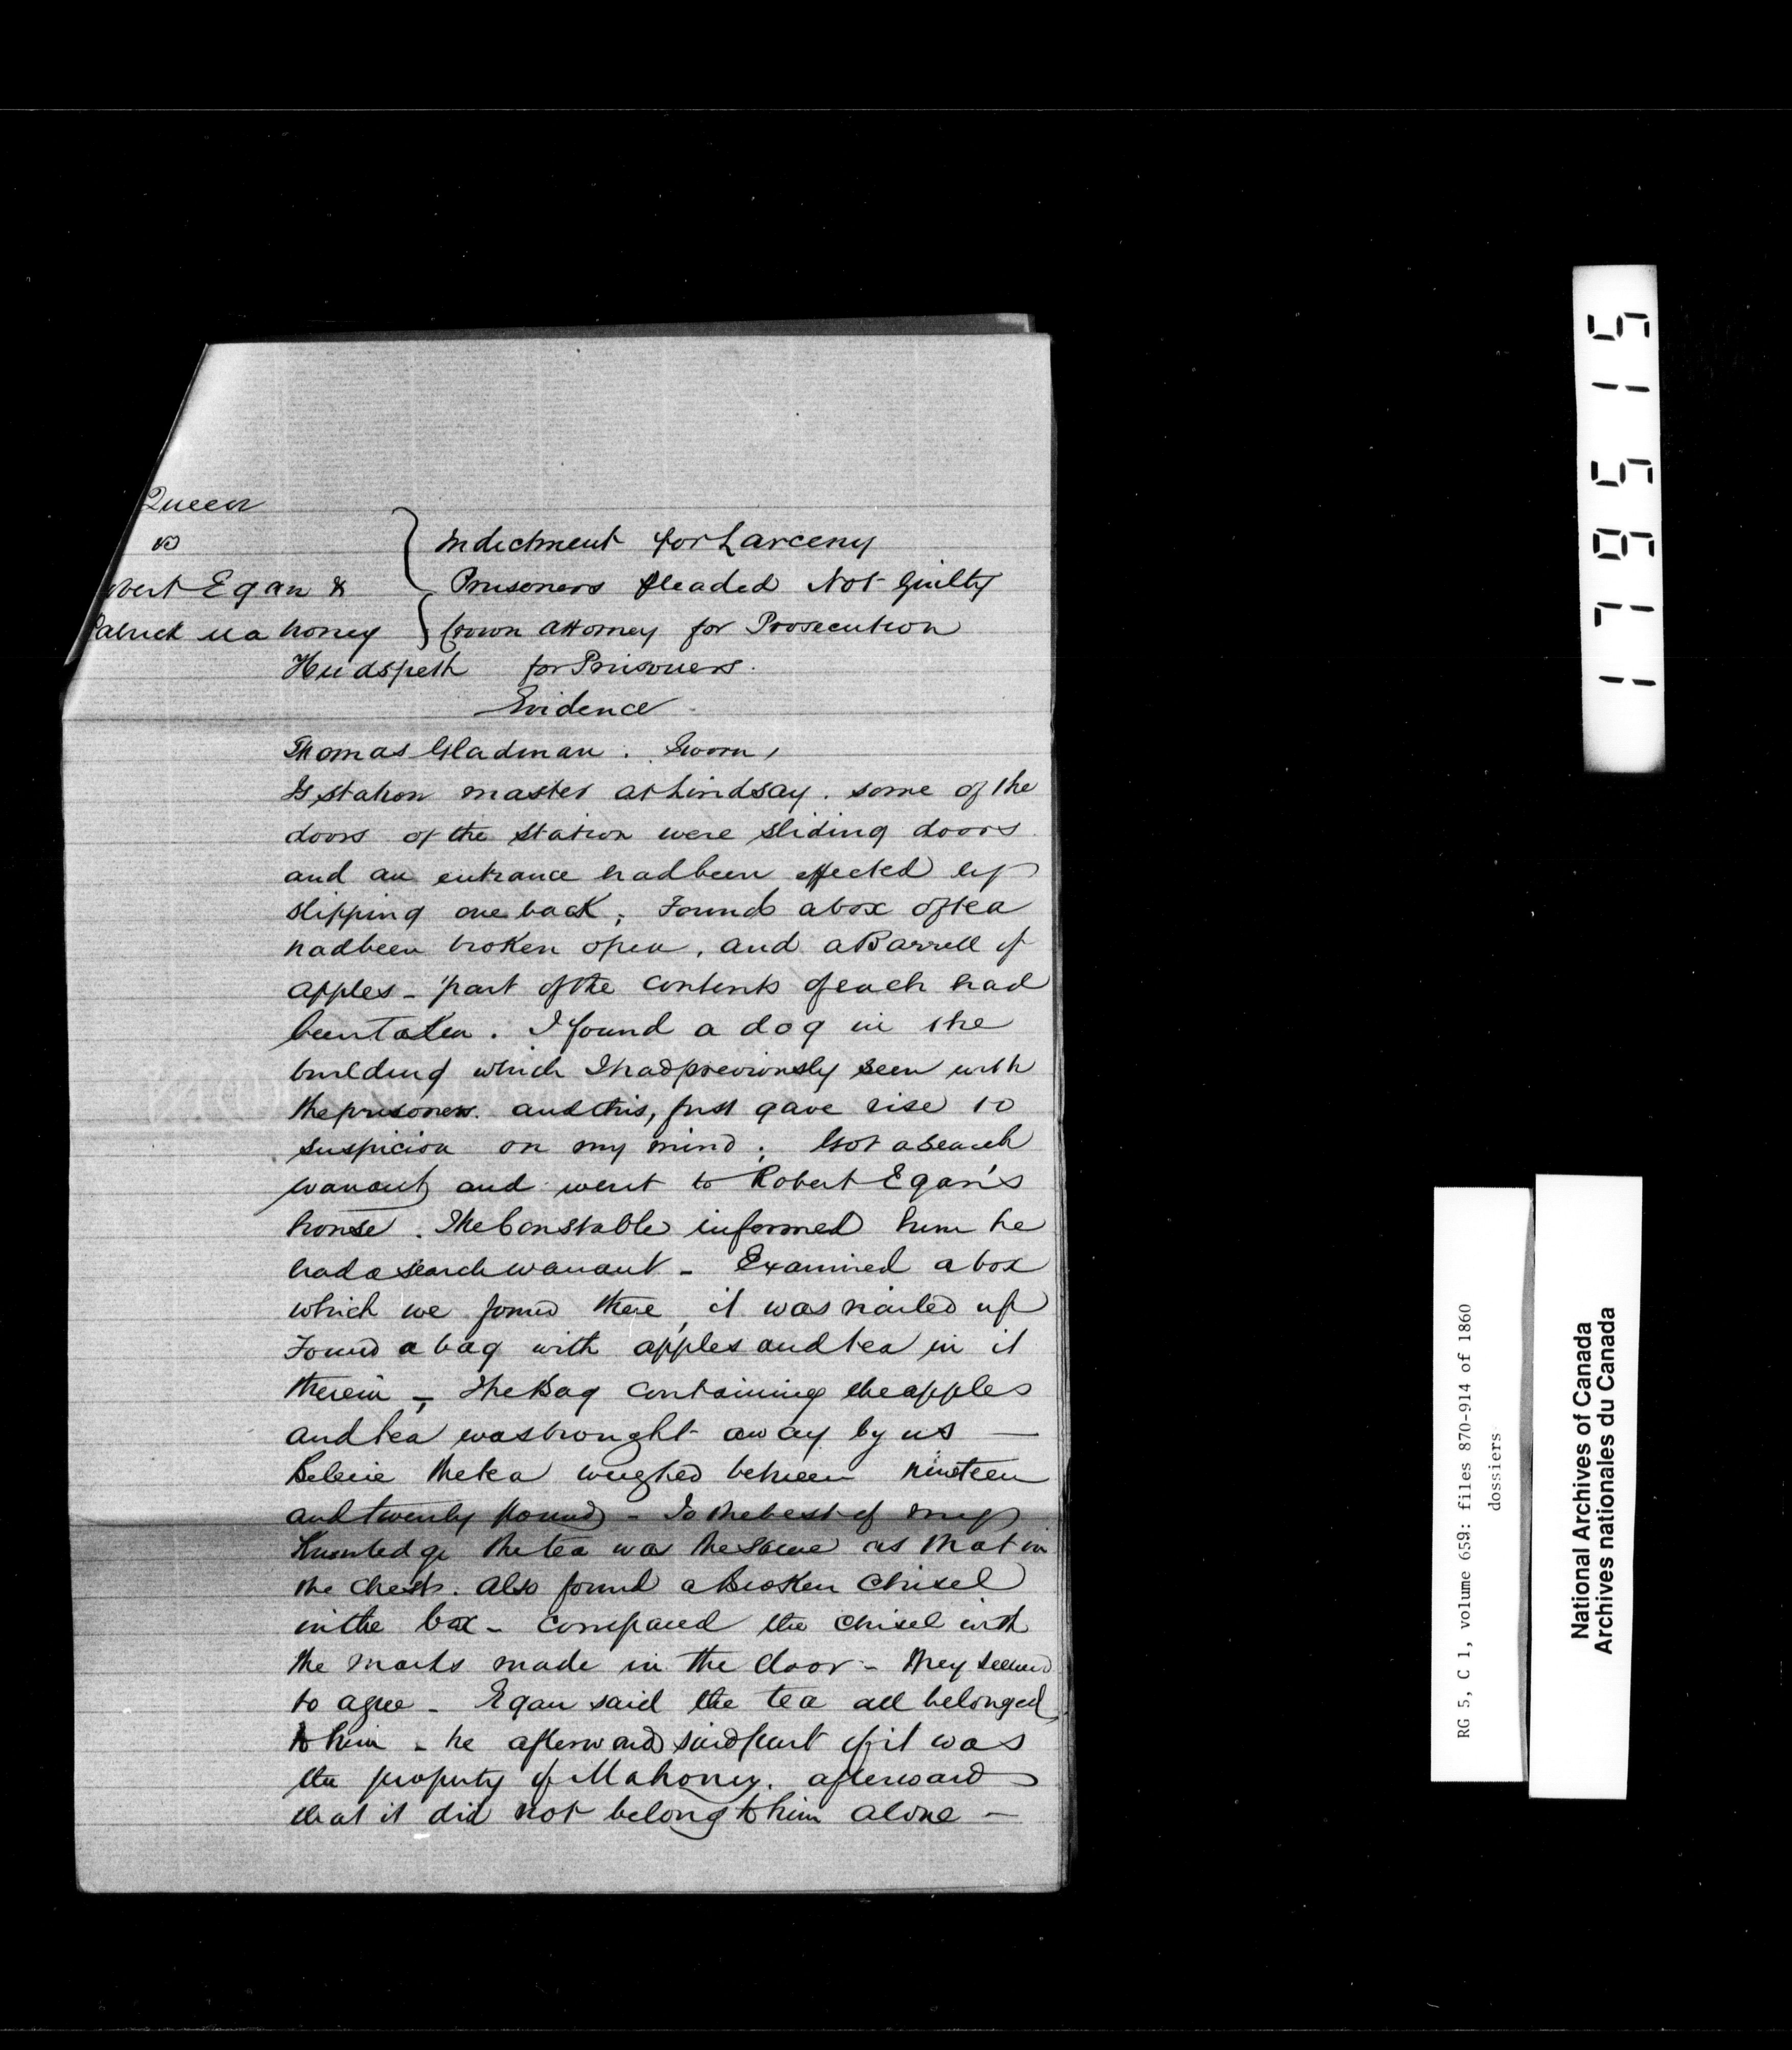 Queen
vs
bert Egan &
Patrick Mahoney
Indictment for Larceny
Prisoners pleaded Not Guilty
Crown Attorney for Prosecution
Hudspeth for Prisoners.
Evidence
Thomas Gladman. Sworn,
Is station master at Lindsay. some of the
doors of the station were sliding doors
and an entrance had been effected by
slipping one back; Found a box of tea
had been broken open, and a Barrell of
apples - part of the contents of each had
been taken. I found a dog in the
building which I had previously seen with
the prisoners. and this, first gave rise to
suspicion on my mind; Got a search
warrant and went to Robert Egan's
house. The Constable informed him he
had a search warrant - Examined a box
which we found there, it was nailed up
Found a bag with apples and tea in it
therein - The Bag containing the apples
and tea was brought away by us -
Beleive the tea weighed between nineteen
and twenty pounds - To the best of my
Knowledge the tea was the same as that in
the chests. Also found a Broken Chisel
in the box - compared the chisel with
the marks made in the door - they seemed
to agree - Egan said the tea all belonged
to him - he afterwards said part of it was
the property of Mahoney. afterward
that it did not belong to him alone -
179515
RG 5, C 1, volume 659: files 870-914 of 1860
dossiers
National Archives of Canada
Archives nationales du Canada